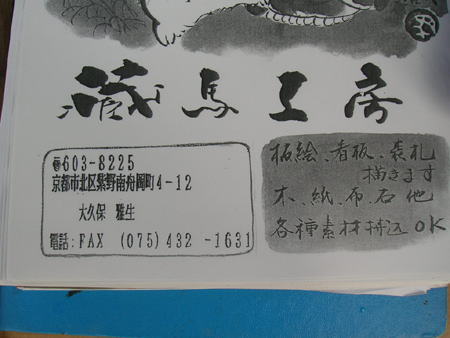 蔵馬工房
〠603-8225
京都市北区紫野南舟岡町4-12
大久保 雅生
電話・FAX (075)432-1631
板絵、看板、表札
描きます
木、紙、布、石他
各種素材持込OK